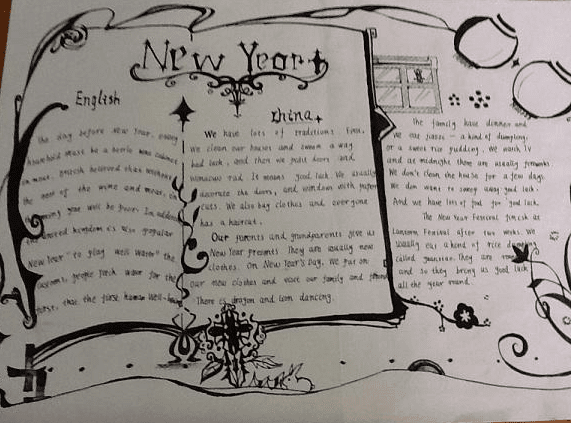 New Year
English
The day before New Year, every
household must be a bottle wine cabinet
in meat. British believed that without
the rest of the wine and meat, in
the coming year will be poor. In addition
the united kingdom is also popular
New Year "to play well water" the
customs, people fetch water for the
first, that the first human well-
China
We have lots of traditions. First,
We clean our houses and sweep away
bad luck, and then we paint doors and
windows red. It means good luck. We usually
decorate the doors, and windows with paper
cuts. We also buy clothes and everyone
has a haircut.
Our parents and grandparents give us
New Year presents They are usually new
clothes. On New Year's Day, We put on
our new clothes and visit our family and friends
There is dragon and lion dancing.
The family have dinner and
We eat jiaozi — a kind of dumpling,
or a sweet rice pudding. We watch TV
and at midnight there are usually fireworks
We don't clean the house for a few days.
We don want to sweep away good luck.
And we have lots of food for good luck.
The New Year Festival finish at
Lantern Festival after two weeks. We
usually eat a kind of rice dumpling
called yuanxiao. They are
and so they bring us good luck
all the year round.